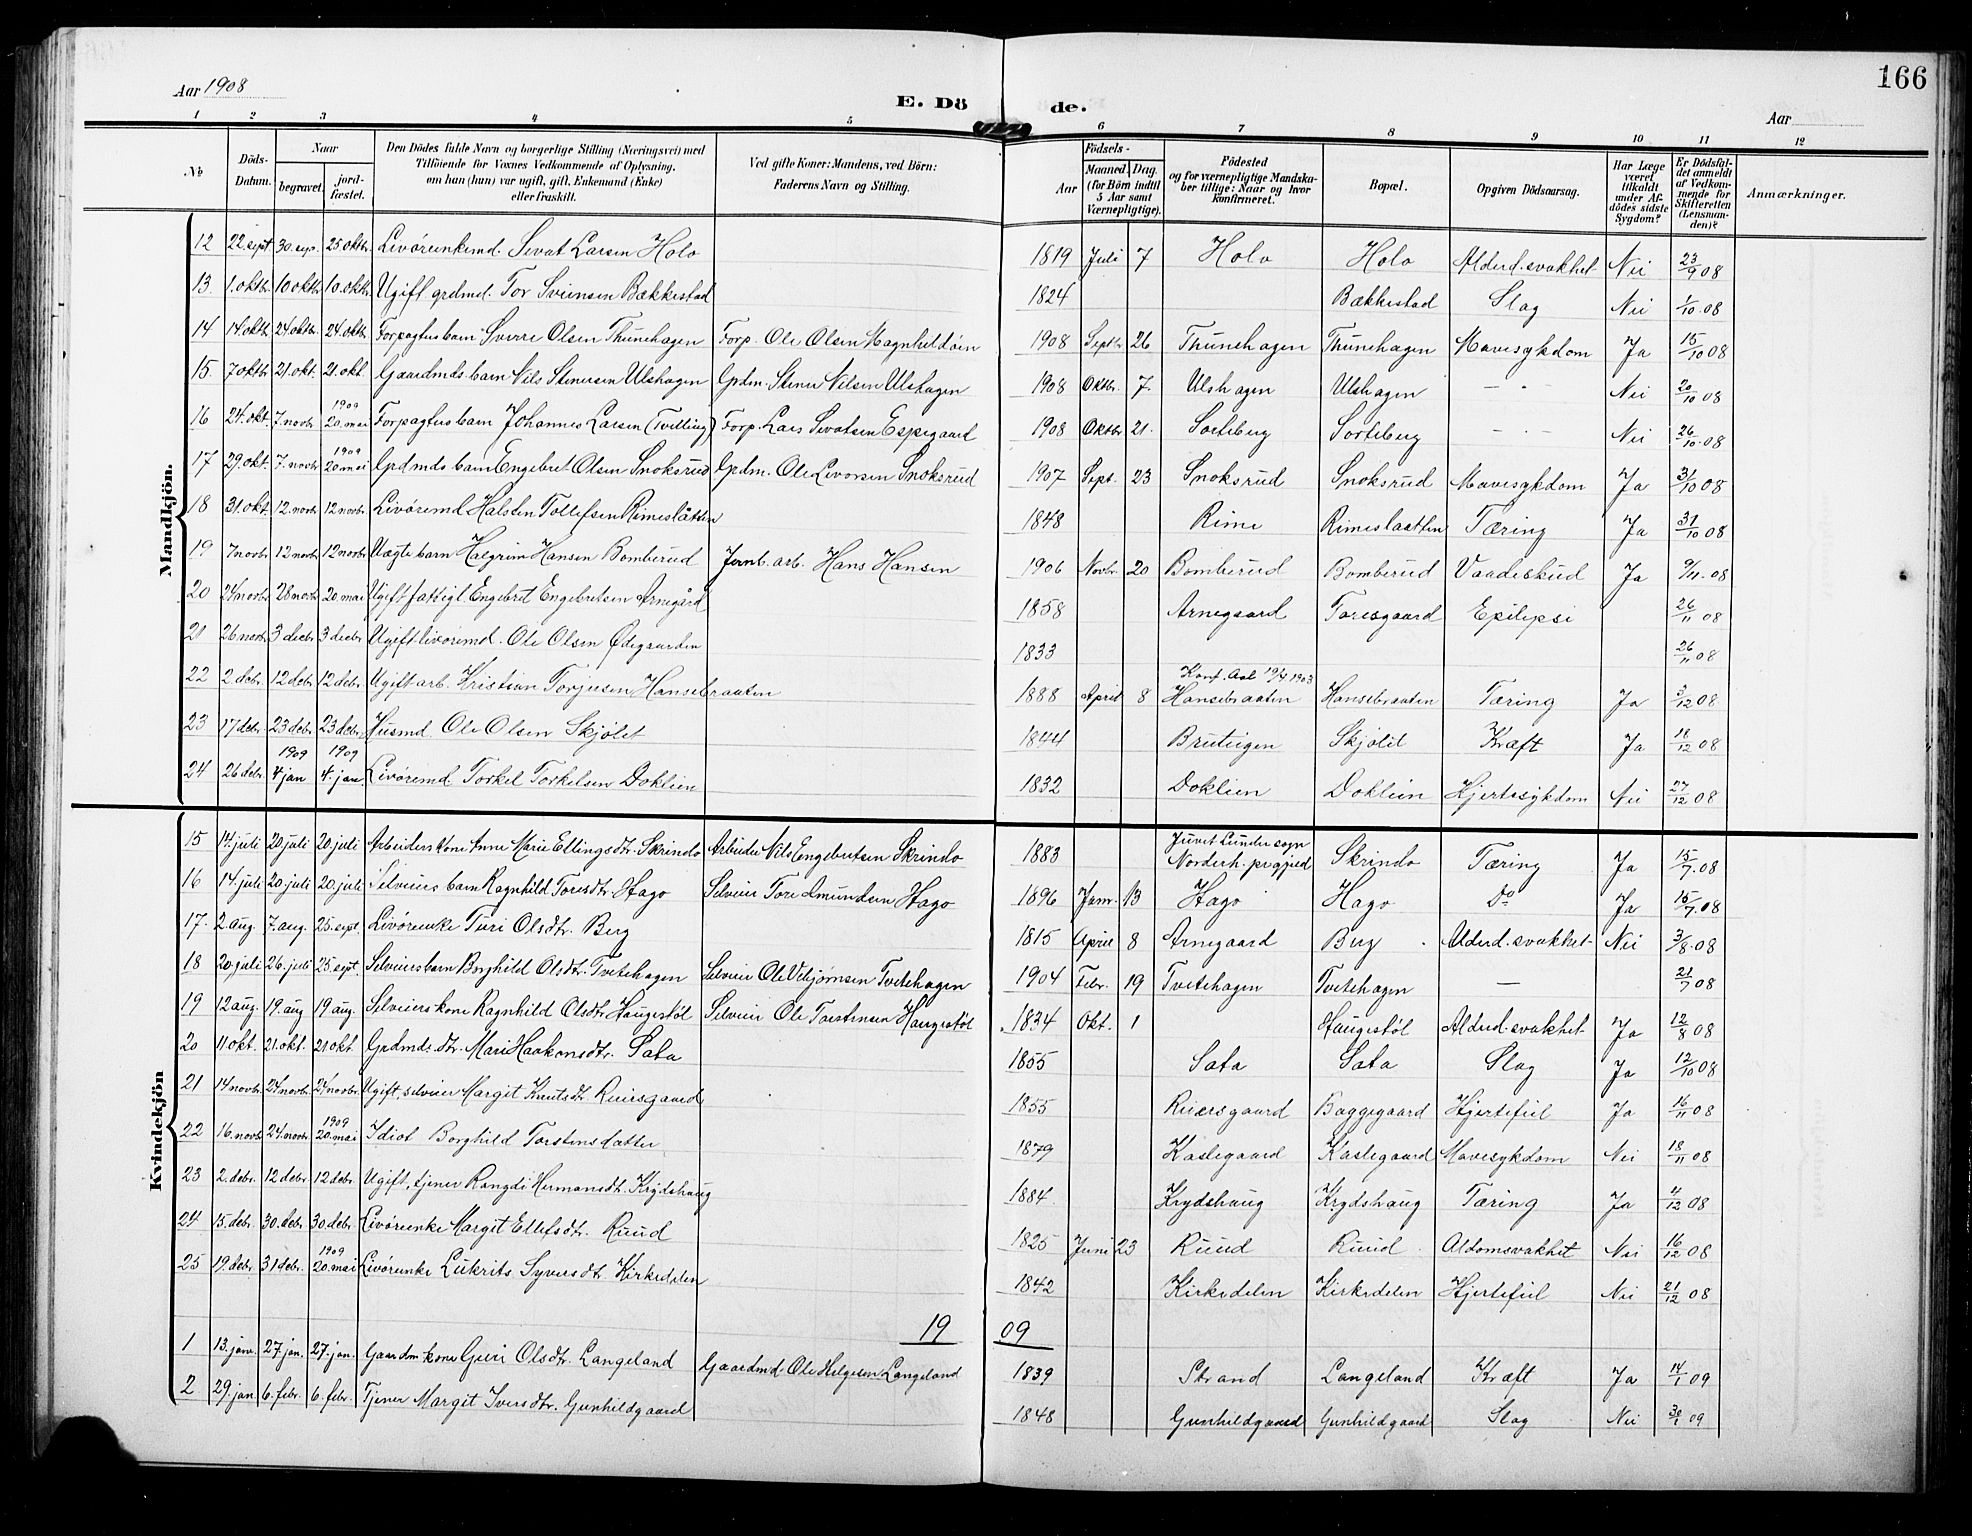 166
Aar 1908
E. Dö de.
Aar
1 2 3 4 5 6 7 8 9 10 11 12
№ | Döds-Datum. | Naar begravet. | jord-fæstet. | Den Dödes fulde Navn og borgerlige Stilling (Næringsvei) med Tilföiende for Voxnes Vedkommende af Oplysning, om han (hun) var ugift, gift, Enkemand (Enke) eller fraskilt. | Ved gifte Koner: Mandens, ved Börn: Faderens Navn og Stilling. | Födsels- Aar | Maaned, Dag. (for Börn indtil 5 Aar samt Værnepligtige). | Födested og for værnepligtige Mandskaber tillige: Naar og hvor konfirmeret. | Bopæl. | Opgiven Dödsaarsag. | Har Læge været tilkaldt under Afdödes sidste Sygdom? | Er Dödsfaldet anmeldt af Vedkommende for Skifteretten (Lensmanden)? | Anmærkninger.
Mandkjön.
12 | 22. sept | 30. sep. | 25 oktbr | Livörenkemd. Sevat Larsen Holo | | 1819 | Juli | 7 | Holo | Holo | Alderd.svakhet | Nei | 23/9 08
13. | 1. oktbr | 10 oktbr | 10. oktbr | Ugift grdmd. Tor Svensen Bækkestad | | 1824 | | | | Bækkestad | Slag | Nei | 1/10 08
14 | 14. oktbr | 24. oktbr | 24. oktbr | Forpagters barn Sverre Olsen Thunehagen | Forp. Ole Olsen Magnheldöin | 1908 | Septbr | 26 | Thunehagen | Thunehagen | Mavesykdom | Ja | 15/10 08
15. | 7 oktbr | 21. okt. | 21. okt | Gaardmds. barn Nils Stenersen Ulshagen | Grdm. Stener Nilsen Ulshagen | 1908 | Oktbr. | 7. | Ulshagen | Ulshagen | - - - | Nei | 20/10 08
16 | 24. okt. | 7. novbr | 1909 20. mai | Forpagters barn Johannes Larsen (Tvilling) | Forp. Lars Sevatsen Espegaard | 1908 | Oktbr | 21. | Sorteberg | Sorteberg | - - - | Nei | 26/10 08
17 | 29. okt. | 7. novbr | 1909 20 mai | Grdmds barn Engebret Olsen Snoksrud | Grdm. Ole Livorsen Snoksrud | 1907 | Sept. | 23 | Snoksrud | Snoksrud | Mavesykdom | Ja | 31/10 08
18 | 31. okt. | 12. novbr | 12 novbr | Livöremd Halsten Tollefsen Rimeslåtten | | 1848 | | | Rime | Rimeslaatten | Tæring | Ja | 31/10 08
19 | 7 novbr | 12 novbr | 12 novbr | Uægte barn Halgrim Hansen Bomberud | Jernb. arb. Hans Hansen | 1906 | Novbr. | 20 | Bomberud | Bomberud | Vaadeskud | Ja | 9/11 08
20 | 24 novbr | 28 novbr | 20. mai | Ugift fattigl. Engebret Engebretsen Arnegård | | 1858 | | | Arnegaard | Toresgaard | Epilepsi | | 26/11 08
21 | 26 novbr | 3 decbr | 3 decbr | Ugift livöremd. Ole Olsen Ødegaarden | | 1833 | | | | | | | 26/11 08
22 | 2 debr. | 12 debr | 12 debr. | Ugift arb. Kristian Torjusen Hansebraaten | | 1888 | April | 8 | Konf. Aal 19/4 1903 Hansebraaten | Hansebraaten | Tæring | Ja | 3/12 08
23 | 17 debr. | 23 debr | 23 debr. | Husmd. Ole Olsen Skjölet | | 1844 | | | Bruteigen | Skjölit | Kræft | Ja | 18/12 08
24 | 26 debr. | 1909 4 jan | 1909 4. jan | Livöremd. Torkel Torkelsen Doklien | | 1832 | | | Doklien | Doklien | Hjertesykdom | Nei | 27/12 08
Kvindekjön
15 | 14. juli | 20 juli | 20. juli | Arbeiders kone Anne Marie Ellingsdtr. Skrindo | Arbeider Nils Engebretsen Skrindo | 1883 | | | Juvet Lunder sogn Norderh. prgjæld | Skrindo | Tæring | Ja | 15/7 08
16 | 14. juli | 20. juli | 20. juli | Selveiers barn Ragnhild Toresdtr. Hago | Selveier Tore Amundsen Hago | 1896 | Janr. | 13 | Hago | Hago | Do | Ja | 15/7 08
17. | 2. aug | 7. aug. | 25. sept. | Livörenke Turi Olsdtr. Berg | | 1815 | April | 8 | Arnegaard | Berg | Alderd.svakhet | Nei | 3/8 08
18 | 20. juli | 26. juli | 25. sept. | Selveiersbarn Borghild Olsdtr. Tvetehagen | Selveier Ole Vebjörnsen Tvetehagen | 1904 | Febr. | 19 | Tvetehagen | Tvetehagen | — | | 21/7 08
19 | 12 aug. | 19. aug | 19 aug. | Selveiers kone Ragnhild Olsdtr Haugestöl | Selveier Ole Torstensen Haugestöl | 1834 | Okt. | 1 | | Haugestöl | Alderd.svakhet | Ja | 12/8 08
20 | 11 okt. | 21. okt. | 21 okt. | Grdmds. dtr. Mari Haakonsdtr. Sata | | 1855 | | | Sata | Sata | Slag | Ja | 12/10 08
21 | 14 novbr. | 24 novbr. | 24 novbr. | Ugift, selveier Margit Knutsdtr. Ruersgaard | | 1855 | | | Ruersgaard | Baggegaard | Hjertefeil | Ja | 16/11 08
22 | 16. novbr | 24. novbr. | 1909 20. mai | Idiot Borghild Torstensdatter | | 1879 | | | Kaslegaard | Kaslegaard | Mavesykdom | Nei | 18/11 08
23 | 2. debr. | 12 debr | 12 debr | Ugift, tjener Rangdi Hermansdtr. Krydshaug | | 1884. | | | Krydshaug | Krydshaug | Tæring | Ja | 4/12 08
24 | 15. debr. | 30. debr | 30. debr. | Livörenke Margit Ellefsdtr. Ruud | | 1825 | Juni | 23 | Ruud | Ruud | Aldomsvakhet | Nei | 16/12 08
25 | 19. debr. | 31 debr. | 1909 20 mai | Livörenke Lukrits Syversdtr. Kirkedelen | | 1842 | | | Kirkedelen | Kirkedelen | Hjertefeil | Nei | 21/12 08
1909
1 | 13. janr. | 27 jan. | 27. jan. | Gaardm. kone Guri Olsdtr. Langeland | Gaardmd. Ole Helgesen Langeland | 1839 | | | Strand | Langeland | Kræft | Ja | 14/1 09
2 | 29. jan. | 6. febr. | 6. febr. | Tjener Margit Iversdtr. Gunhildgaard | | 1848 | | | Gunhildgaard | Gunhildgaard | Slag | Nei | 30/1 09